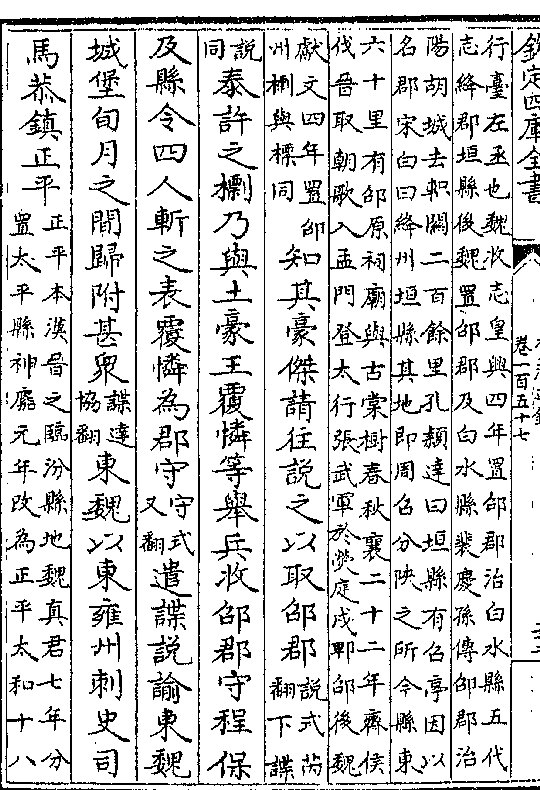 欽定四庫全書
卷一百五十七
行臺左丞也魏收志皇興四年置邵郡治白水縣五代
志絳郡垣縣後魏置邵郡及白水縣裴慶孫傳邵郡治
陽胡城去軹關二百餘里孔穎達曰垣縣有召亭因以
名郡宋白曰絳州垣縣其地即周召分陜之所今縣東
六十里有邵原祠廟與古棠樹春秋襄二十二年齊侯
伐晉取朝歌入孟門登太行張武軍於熒庭戍郫邵後魏
獻文四年置邵
州㯹與標同
知其豪傑請往説之以取邵郡
説式芮
翻下諜
説
同
泰許之㯹乃與土豪王覆憐等舉兵收邵郡守程保
及縣令四人斬之表覆憐為郡守
守式
又翻
遣諜説諭東魏
城堡旬月之間歸附甚衆
諜達
協翻
東魏以東雍州刺史司
馬恭鎮正平
正平本漢晉之臨汾縣地魏真君七年分
置太平縣神䴥元年改為正平太和十八